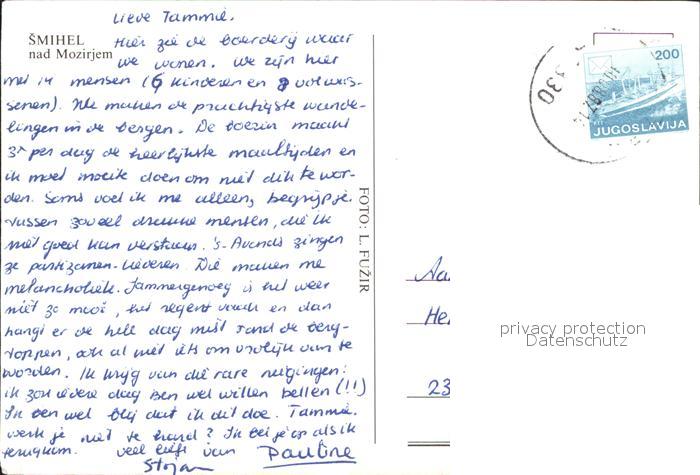 Lieve Tammie.
ŠMIHEL
nad Mozirjem
Hier zie de boerderij waar
we wonen. We zijn hier
met 14 mensen (6 kinderen en 8 volwas-
senen). We maken de prachtigste wande-
lingen in de bergen. De boerin maakt
3x per dag de heerlijkste maaltijden en
ik moet moeite doen om niet dik te wor-
den. Soms voel ik me alleen, begrijp je.
tussen zoveel mensen, die ik
niet goed kan verstaan. 's-Avonds zingen
ze partizanen-liederen. Die maken me
melancholiek. Jammergenoeg is het weer
niet zo mooi, het regent vaak en dan
hangt er de hele dag mist rond de berg-
toppen, ook al niet iets om vrolijk van te
worden. Ik krijg van die rare neigingen:
ik zou iedere dag een wel willen bellen (!!)
Ik ben wel blij dat ik dit doe. Tammie.
werk je niet te hard? Ik bel je op als ik
terugkom. veel liefs van Pauline
Stojan
FOTO: L. FUŽIR
200
JUGOSLAVIJA
PTT
330
Aa
He
23
privacy protection
Datenschutz